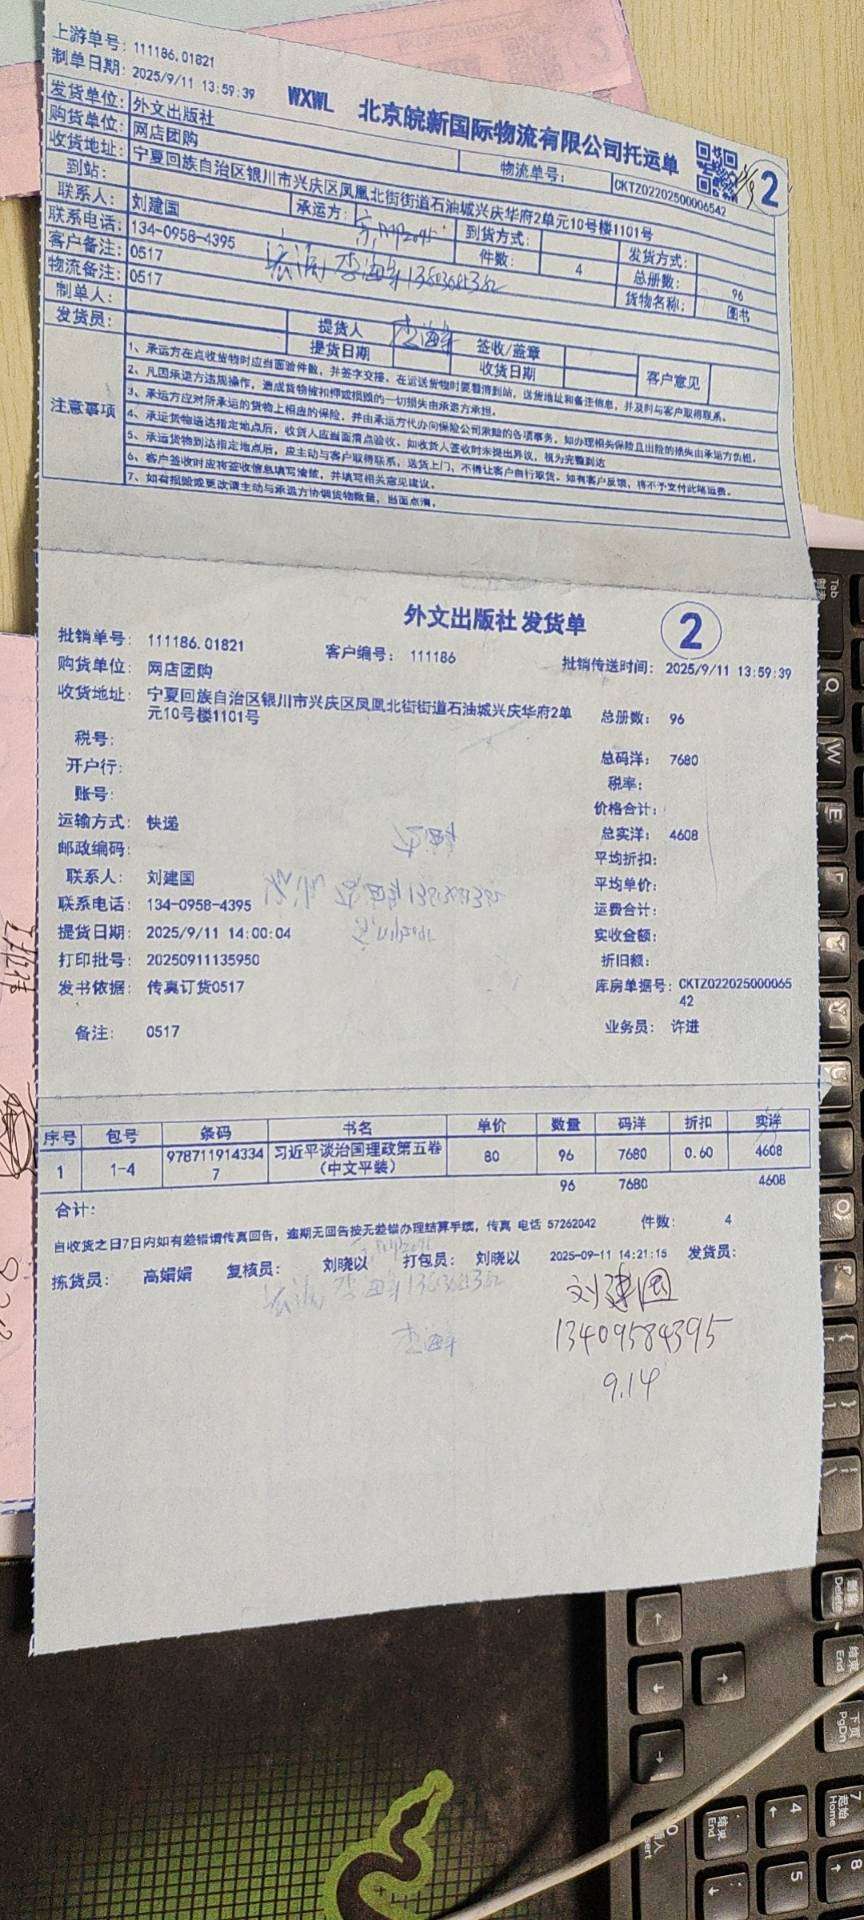 上游单号：111186.01821
制单日期：2025/9/11 13:59:39
WXWL 北京皖新国际物流有限公司托运单
2
发货单位：外文出版社
物流单号：CKTZ02202500006542
购货单位：网店团购
收货地址：宁夏回族自治区银川市兴庆区凤凰北街街道石油城兴庆华府2单元10号楼1101号
到站：
承运方：
到货方式：
发货方式：
联系人：刘建国
件数：4
总册数：96
联系电话：134-0958-4395
货物名称：图书
客户备注：0517
物流备注：0517
制单人：
提货人
签收/盖章
客户意见
发货员：
提货日期
收货日期
注意事项
1、承运方在点收货物时应当面验件数，并签字交接，在运送货物时要看清到站，送货地址和备注信息，并及时与客户取得联系。
2、凡因承运方违规操作，造成货物被扣押或损毁的一切损失由承运方承担。
3、承运方应对所承运的货物上相应的保险，并由承运方代办向保险公司索赔的各项事务，如办理相关保险且出险的损失由承运方负担。
4、承运货物送达指定地点后，收货人应当面清点验收，如收货人签收时未提出异议，视为完整到达
5、承运货物到达指定地点后，应主动与客户取得联系，送货上门，不得让客户自行取货。如有客户反馈，将不予支付此笔运费。
6、客户签收时应将签收信息填写清楚，并填写相关意见建议。
7、如有损毁或更改请主动与承运方协调货物数量，当面点清。
外文出版社发货单
2
批销单号：111186.01821
客户编号：111186
批销传送时间：2025/9/11 13:59:39
购货单位：网店团购
收货地址：宁夏回族自治区银川市兴庆区凤凰北街街道石油城兴庆华府2单
元10号楼1101号
总册数：96
税号：
总码洋：7680
开户行：
税率：
账号：
价格合计：
运输方式：快递
总实洋：4608
邮政编码：
平均折扣：
联系人：刘建国
平均单价：
联系电话：134-0958-4395
运费合计：
提货日期：2025/9/11 14:00:04
实收金额：
打印批号：20250911135950
折旧额：
发书依据：传真订货0517
库房单据号：CKTZ022025000065
42
备注：0517
业务员：许进
序号 包号 条码 书名 单价 数量 码洋 折扣 实洋
1 1-4 978711914334 习近平谈治国理政第五卷 80 96 7680 0.60 4608
7 （中文平装）
合计： 96 7680 4608
自收货之日7日内如有差错请传真回告，逾期无回告按无差错办理结算手续，传真 电话 57262042 件数： 4
拣货员： 高娟娟 复核员： 刘晓以 打包员： 刘晓以 2025-09-11 14:21:15 发货员：
刘建国
13409584395
9.14